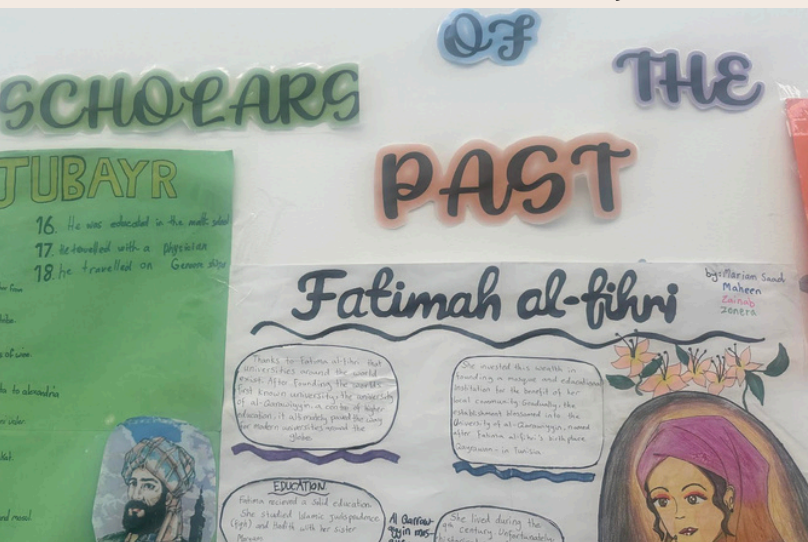 SCHOLARS
OF
THE
PAST
JUBAYR
16. He was educated in the
17. He travelled with a physician
18. he travelled on Genoan ships
of wine.
to alexandria
Fatimah al-fihri
by: Mariam Saad
Maheen
Zainab
Zonera
Thanks to Fatima al-fihri that
universities around the world
exist. After founding the worlds
first known university, the university
of al-Qarawiyyin, a centre of higher
education, it ultimately paved the way
for modern universities around the
globe.
She invested this wealth in
founding a mosque and educational
institution for the benefit of her
local community. Gradually, the
establishment blossomed into the
University of al-Qarawiyyin, named
after Fatima al-fihri's birth place
in Tunisia.
EDUCATION
Fatima recieved a solid education
She studied Islamic jurisprudence
(Fiqh) and Hadith with her sister
Maryam
Al Qarraw-
iyyin mos-
She lived during the
9th century. Unfortunately,